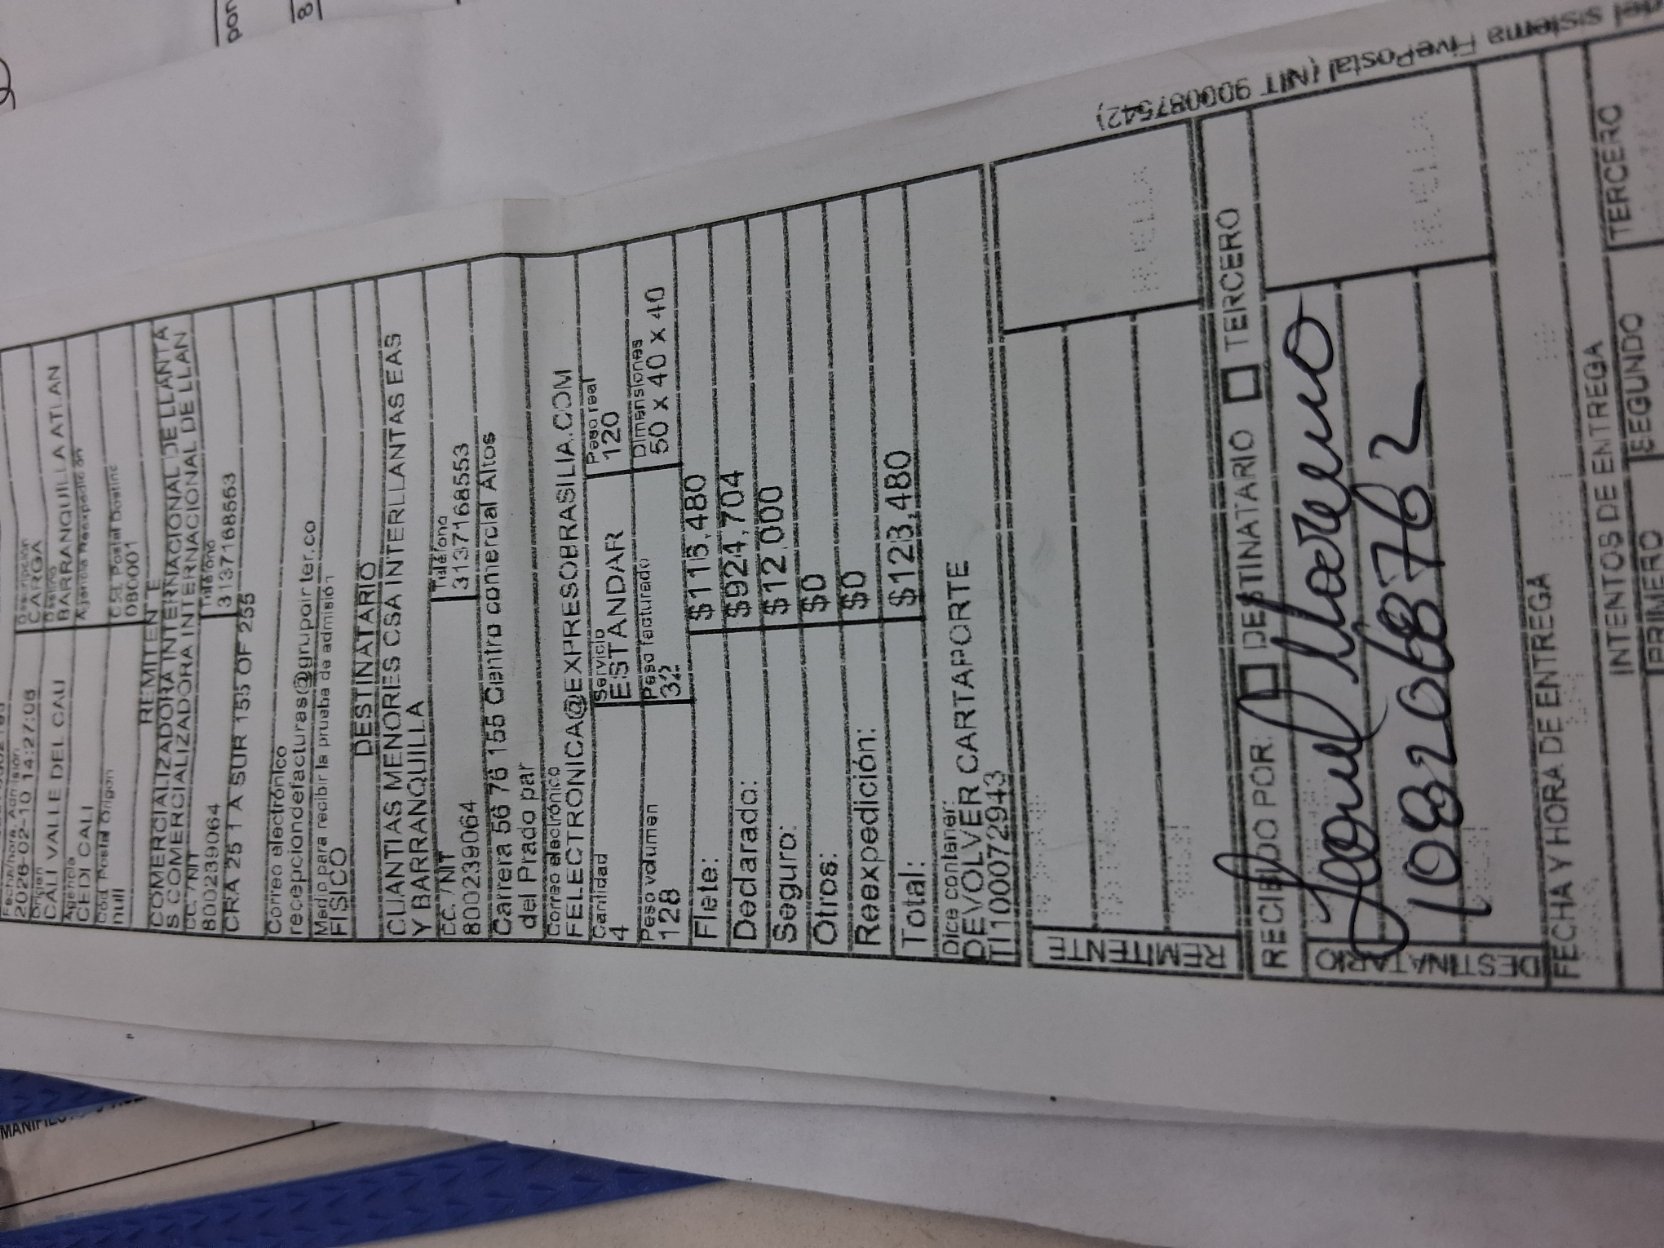 Fecha/hora. Admisión
2026-02-10 14:27:06
Descripción
CARGA
Origen
CALI VALLE DEL CAU
Destino
BARRANQUILLA ATLAN
Agencia
CEDI CALI
Agencia Reexpedición
Cód. Postal Origen
null
Cód. Postal Destino
080001
REMITENTE
COMERCIALIZADORA INTERNACIONAL DE LLANTA
S COMERCIALIZADORA INTERNACIONAL DE LLAN
CC./NIT
800239064
Teléfono
3137168553
CRA 25 1 A SUR 155 OF 235
Correo electrónico
recepciondefacturas@grupointer.co
Medio para recibir la prueba de admisión
FISICO
DESTINATARIO
CUANTIAS MENORES CSA INTERLLANTAS EAS
Y BARRANQUILLA
CC./NIT
800239064
Teléfono
3137168553
Carrera 56 76 155 Centro comercial Altos
del Prado par
Correo electrónico
FELECTRONICA@EXPRESOBRASILIA.COM
Cantidad
4
Servicio
ESTANDAR
Peso real
120
Peso volumen
128
Peso facturado
32
Dimensiones
50 x 40 x 40
Flete: $115,480
Declarado: $924,704
Seguro: $12,000
Otros: $0
Reexpedición: $0
Total: $123,480
Dice contener:
DEVOLVER CARTAPORTE
TI1000072943
REMITENTE
HUELLA
RECIBIDO POR: DESTINATARIO TERCERO
DESTINATARIO
Moreno
1082068762
HUELLA
FECHA Y HORA DE ENTREGA
INTENTOS DE ENTREGA
PRIMERO SEGUNDO TERCERO
del sistema FivePostal (NIT 900087542)
por
8